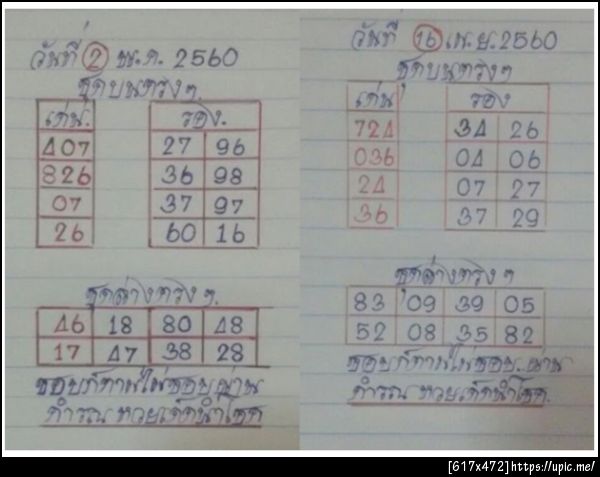 วันที่ 2 พ.ค. 2560
ชุดบนตรงๆ
เด่น. รอง.
407 27 96
826 36 98
07 37 97
26 60 16
ชุดล่างตรงๆ.
46 18 80 48
17 47 38 28
ชอบก็ตามไม่ชอบผ่าน
คำรณ หวยเด็ดนำโชค
วันที่ 16 เม.ย. 2560
ชุดบนตรงๆ
เด่น รอง
724 34 26
036 04 06
24 07 27
36 37 29
ชุดล่างตรงๆ
83 09 39 05
52 08 35 82
ชอบก็ตามไม่ชอบ.ผ่าน
คำรณ หวยเด็ดนำโชค.
[617x472]https://upic.me/